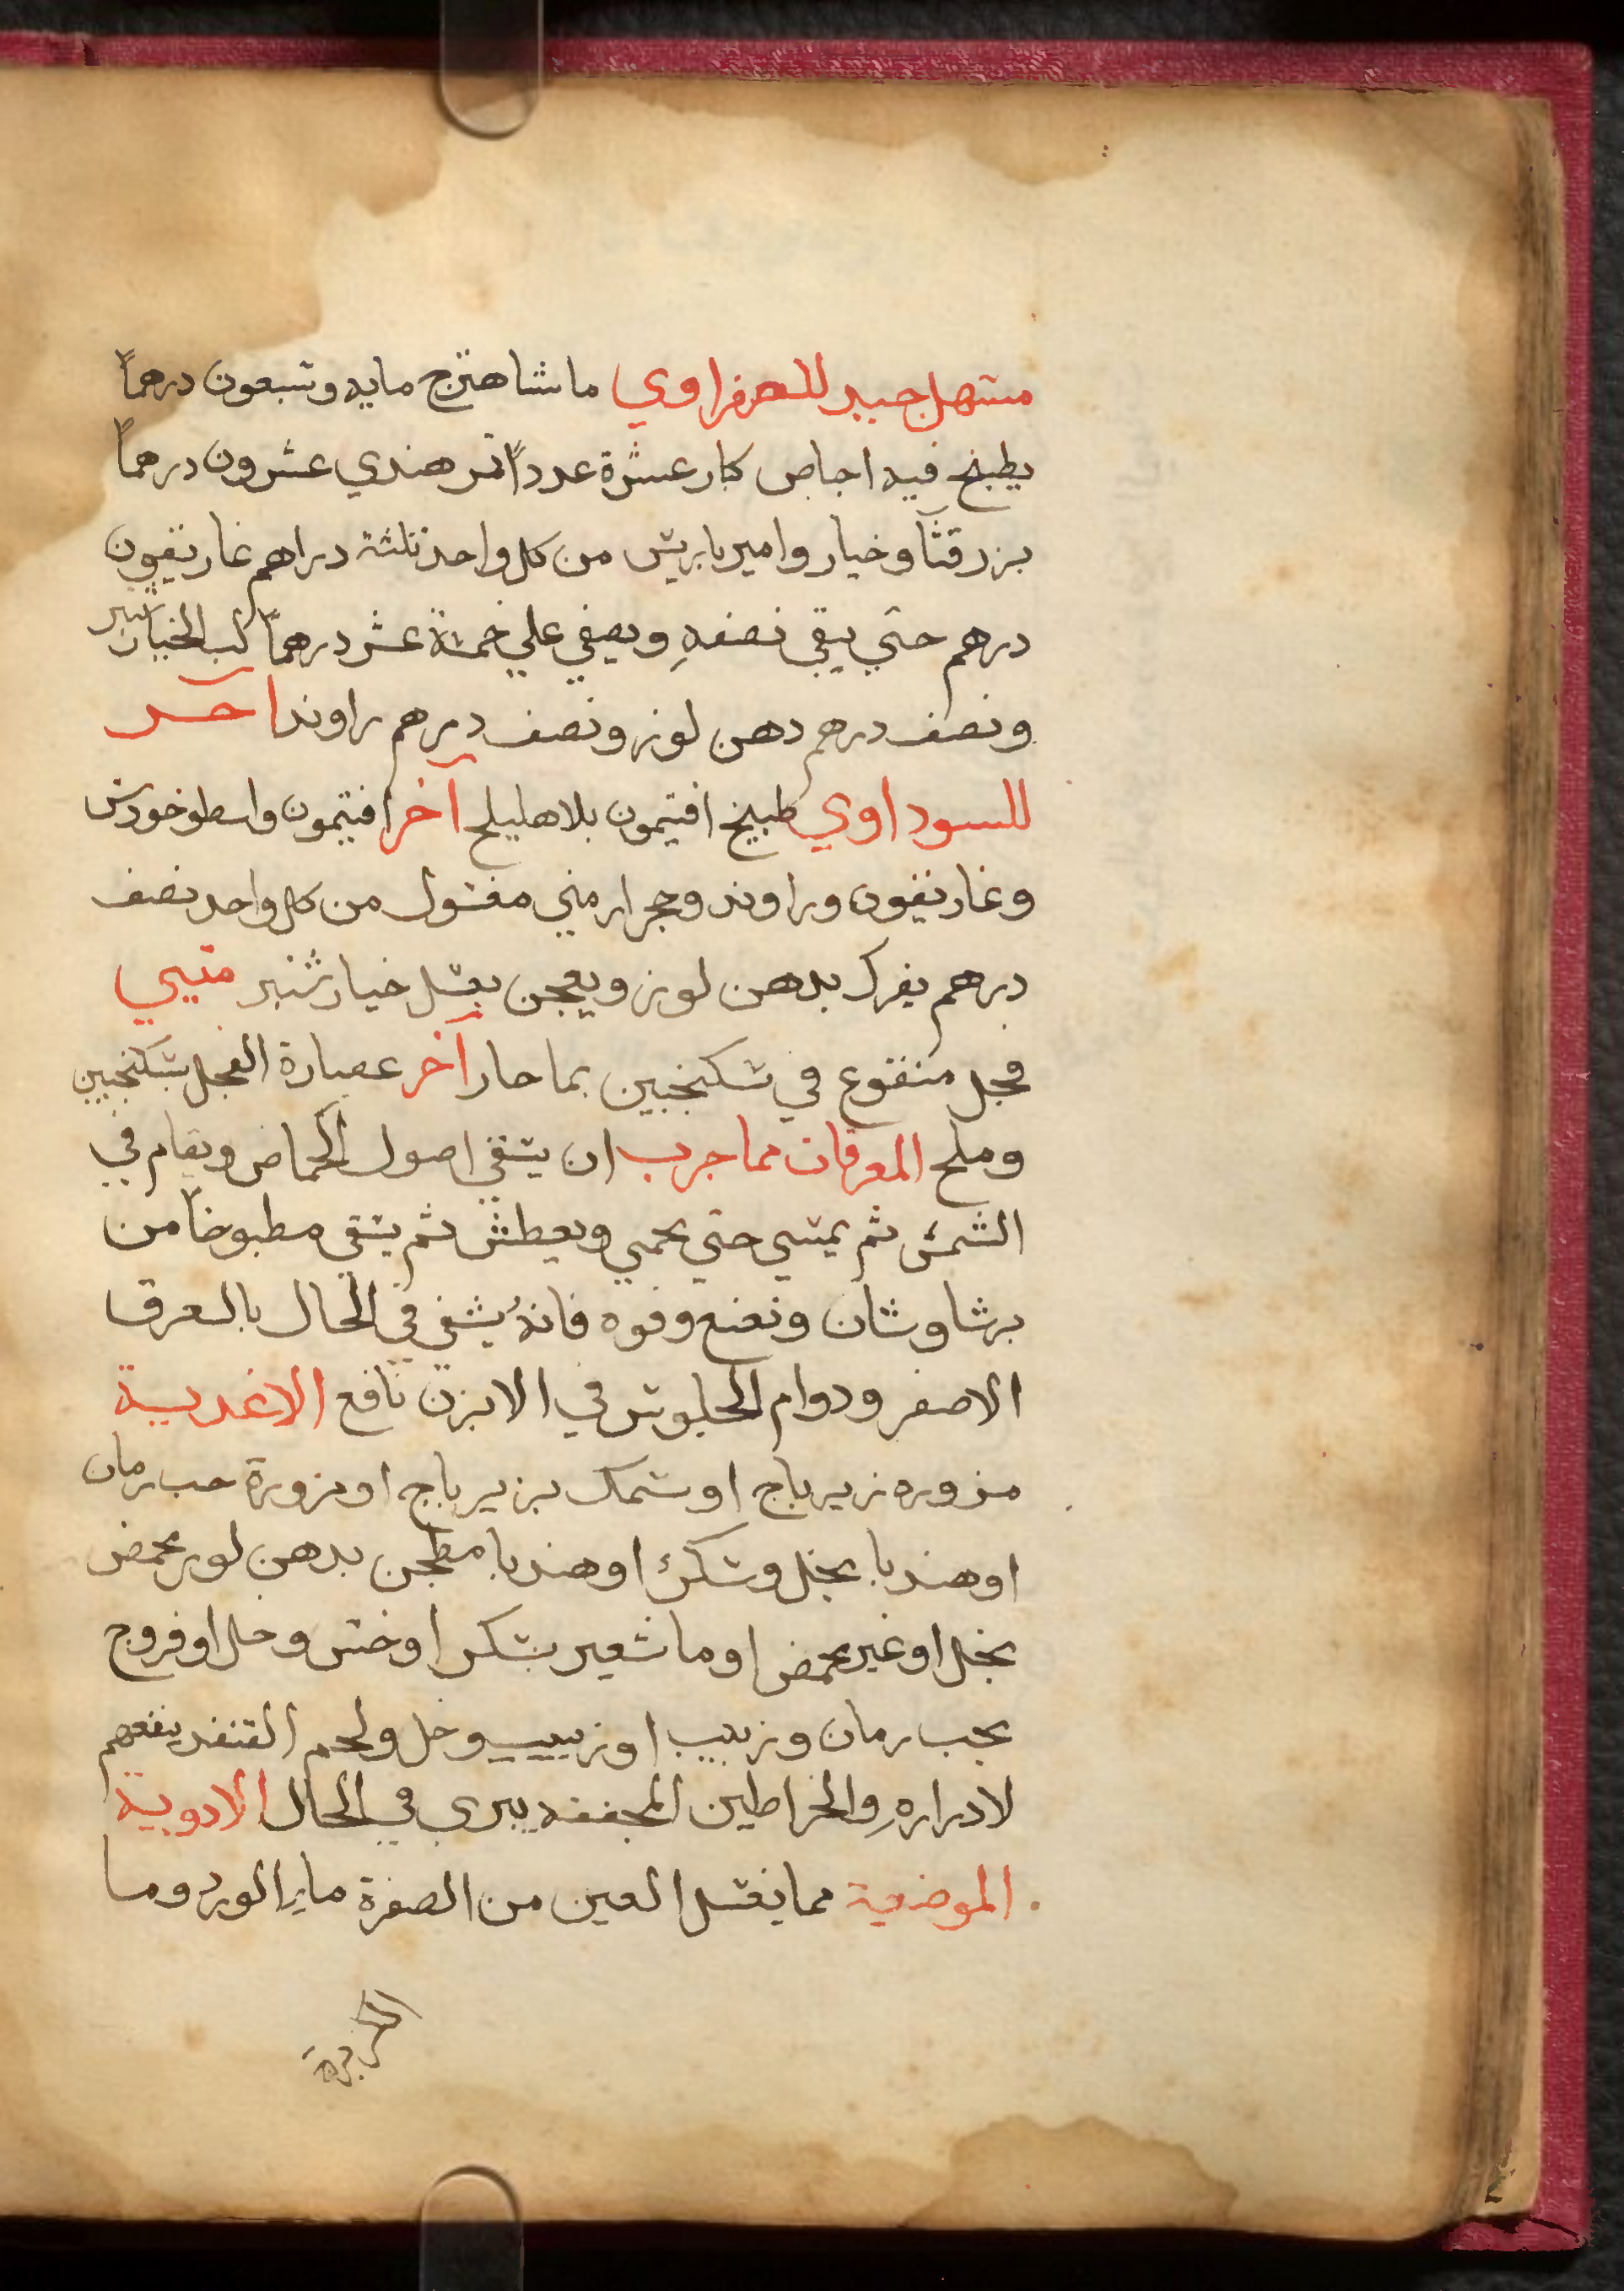 مسهل جيد للصفراوي ما شاهترج مايه وسبعون درهماً
يطبخ فيه اجاص كبار عشرة عدداً تمر هندي عشرون درهماً
بزر قثآ وخيار وامير باريس من كل واحد ثلثة دراهم غاريقون
درهم حتي يبقي نصفهِ ويصفي علي خمسة عشر درهماً لب الخيار شنبر
ونصف درهم دهن لوز ونصف درهم راوند آخـــر
للسوداوي طبيخ افتيمون بلا هليلج آخر افتيمون واسطوخودس
وغاريقون وراوند وحجر ارمني مغسول من كل واحد نصف
درهم يفرك بدهن لوز ويعجن بعسل خيار شنبر مقيي
فجل منقوع في سكنجبين بما حار آخر عصارة الفجل بسكنجبين
وملح المعرقات مما جرب ان يسقي اصول الحماض ويقام في
الشمس ثم يمشي حتي يحمي ويعطش ثم يسقي مطبوخاً من
برشاوشان ونعنع وفوه فانهُ يشفي في الحال بالعرق
الاصفر ودوام الجلوس في الابزن نافع الاغذيـة
مزوره زيرباج او سمك بزيرباج او مزورة حب رمان
او هندبا بخل وسكر او هندبا مطجن بدهن لوز محمض
بخل او غير محمض او ما شعير بسكر او خس وخل او فروج
بحب رمان وزبيب او زبيب وخل ولحم القنفد ينفعهم
لادرارهِ والخراطين المجففه يبري في الحال الادوية
الموضعية مما يغسل العين من الصفرة مايِ الورد وما
الكزبرة